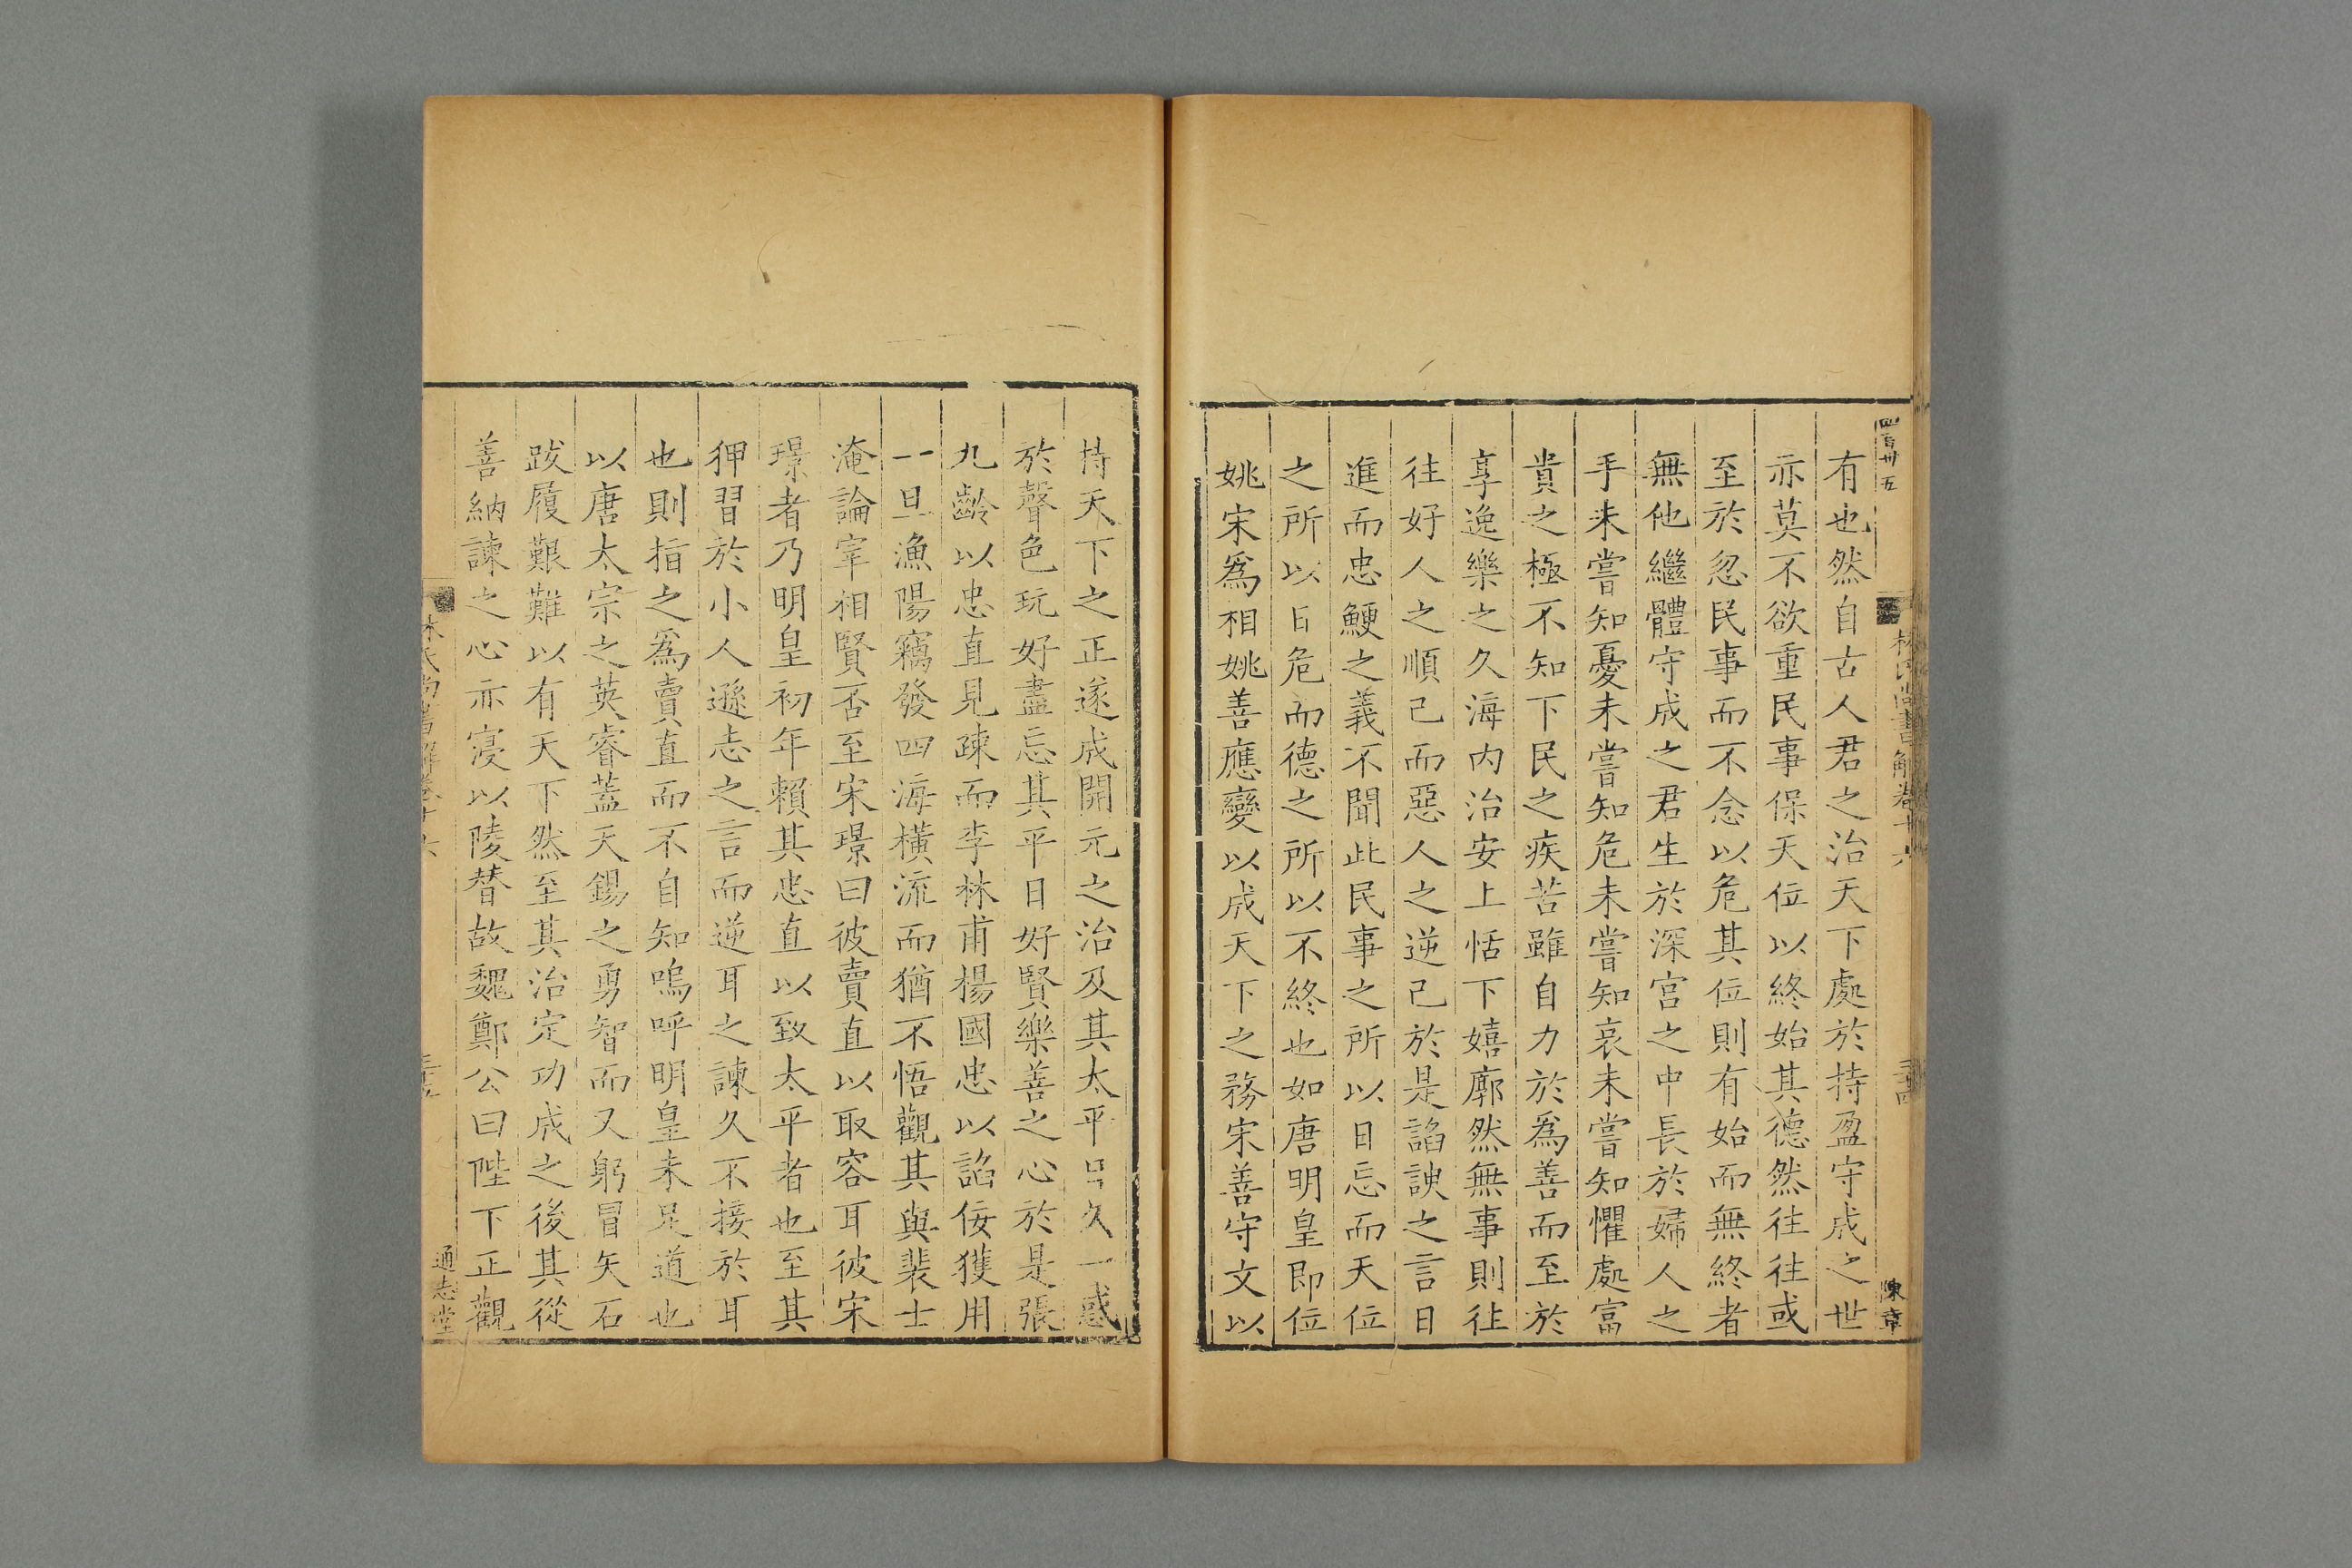 四百卅五
林氏尚書解卷十六
三十四
陳章
有也然自古人君之治天下處於持盈守成之世
亦莫不欲重民事保天位以終始其德然往往或
至於忽民事而不念以危其位則有始而無終者
無他繼體守成之君生於深宫之中長於婦人之
手未嘗知憂未嘗知危未嘗知哀未嘗知懼處富
貴之極不知下民之疾苦雖自力於爲善而至於
享逸樂之久海内治安上恬下嬉廓然無事則往
往好人之順己而惡人之逆己於是諂諛之言日
進而忠鯁之義不聞此民事之所以日忘而天位
之所以日危而德之所以不終也如唐明皇即位
姚宋爲相姚善應變以成天下之務宋善守文以
持天下之正遂成開元之治及其太平日久一惑
於聲色玩好盡忘其平日好賢樂善之心於是張
九齡以忠直見疎而李林甫楊國忠以諂佞獲用
一旦漁陽竊發四海橫流而猶不悟觀其與裴士
淹論宰相賢否至宋璟曰彼賣直以取容耳彼宋
璟者乃明皇初年賴其忠直以致太平者也至其
狎習於小人遜志之言而逆耳之諫久不接於耳
也則指之爲賣直而不自知嗚呼明皇未足道也
以唐太宗之英睿蓋天錫之勇智而又躬冒矢石
跋履艱難以有天下然至其治定功成之後其從
善納諫之心亦寖以陵替故魏鄭公曰陛下正觀
林氏尚書解卷十六
通志堂